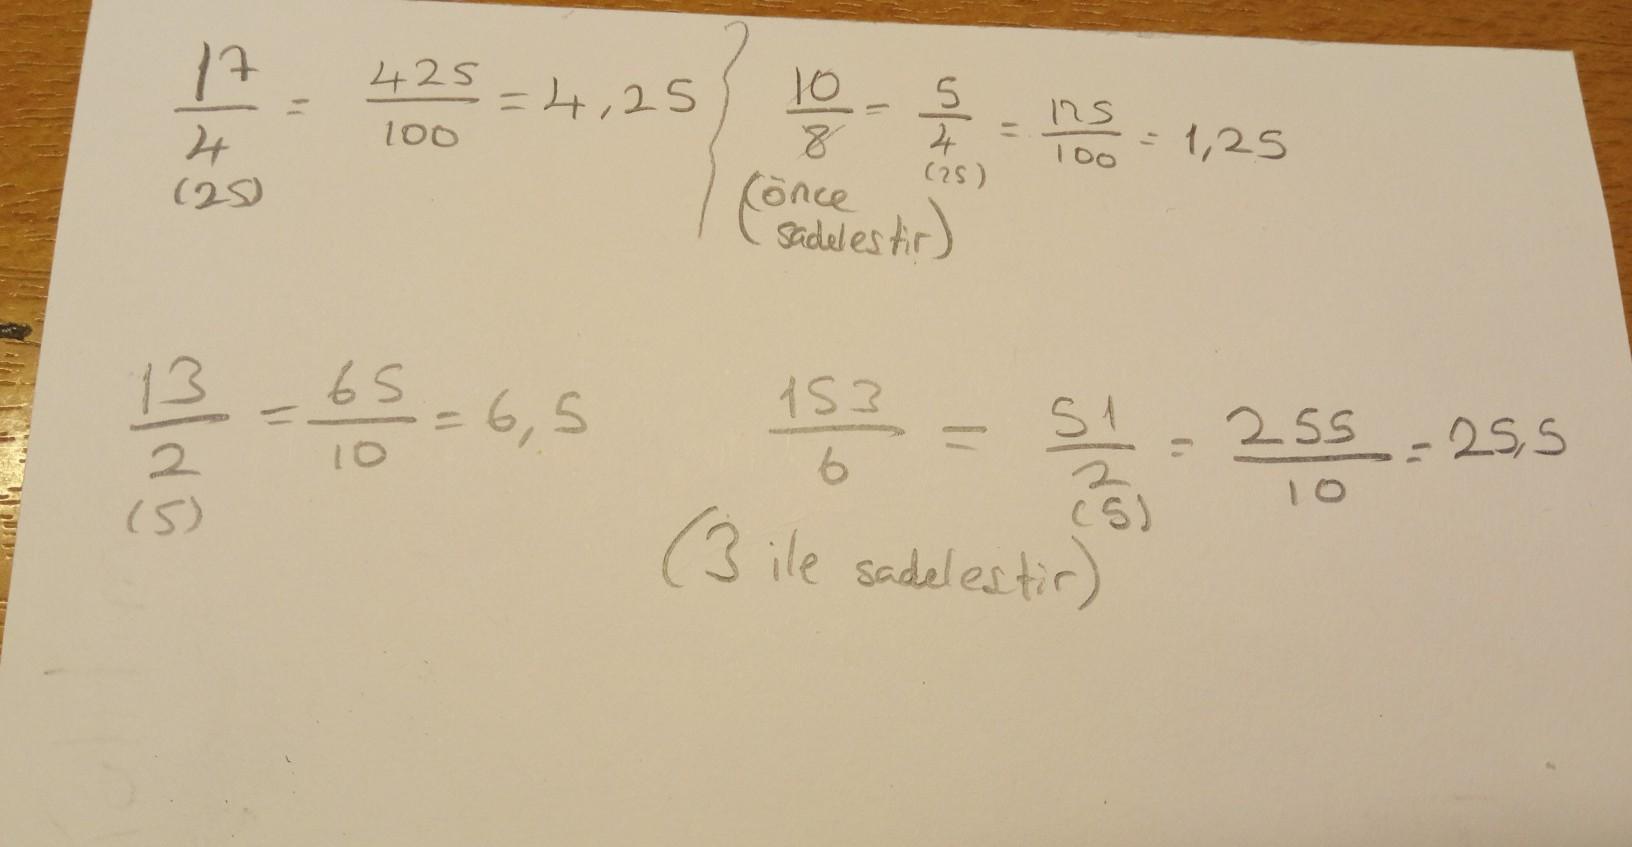 17/4 = 425/100 = 4,25
(25)
10/8 = 5/4 = 125/100 = 1,25
(25)
(önce
sadelestir)
13/2 = 65/10 = 6,5
(5)
153/6 = 51/2 = 255/10 = 25,5
(5)
(3 ile sadelestir)